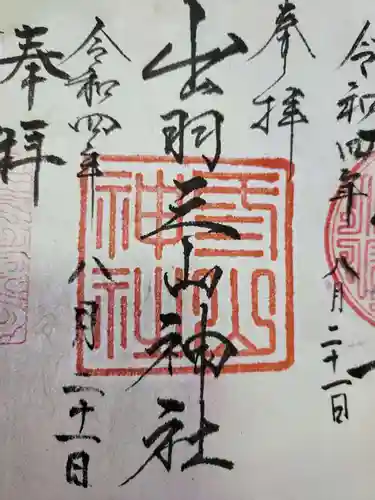 令和四年八月二十一日
奉拝
出羽三山神社
三山神社
令和四年八月二十一日
奉拝